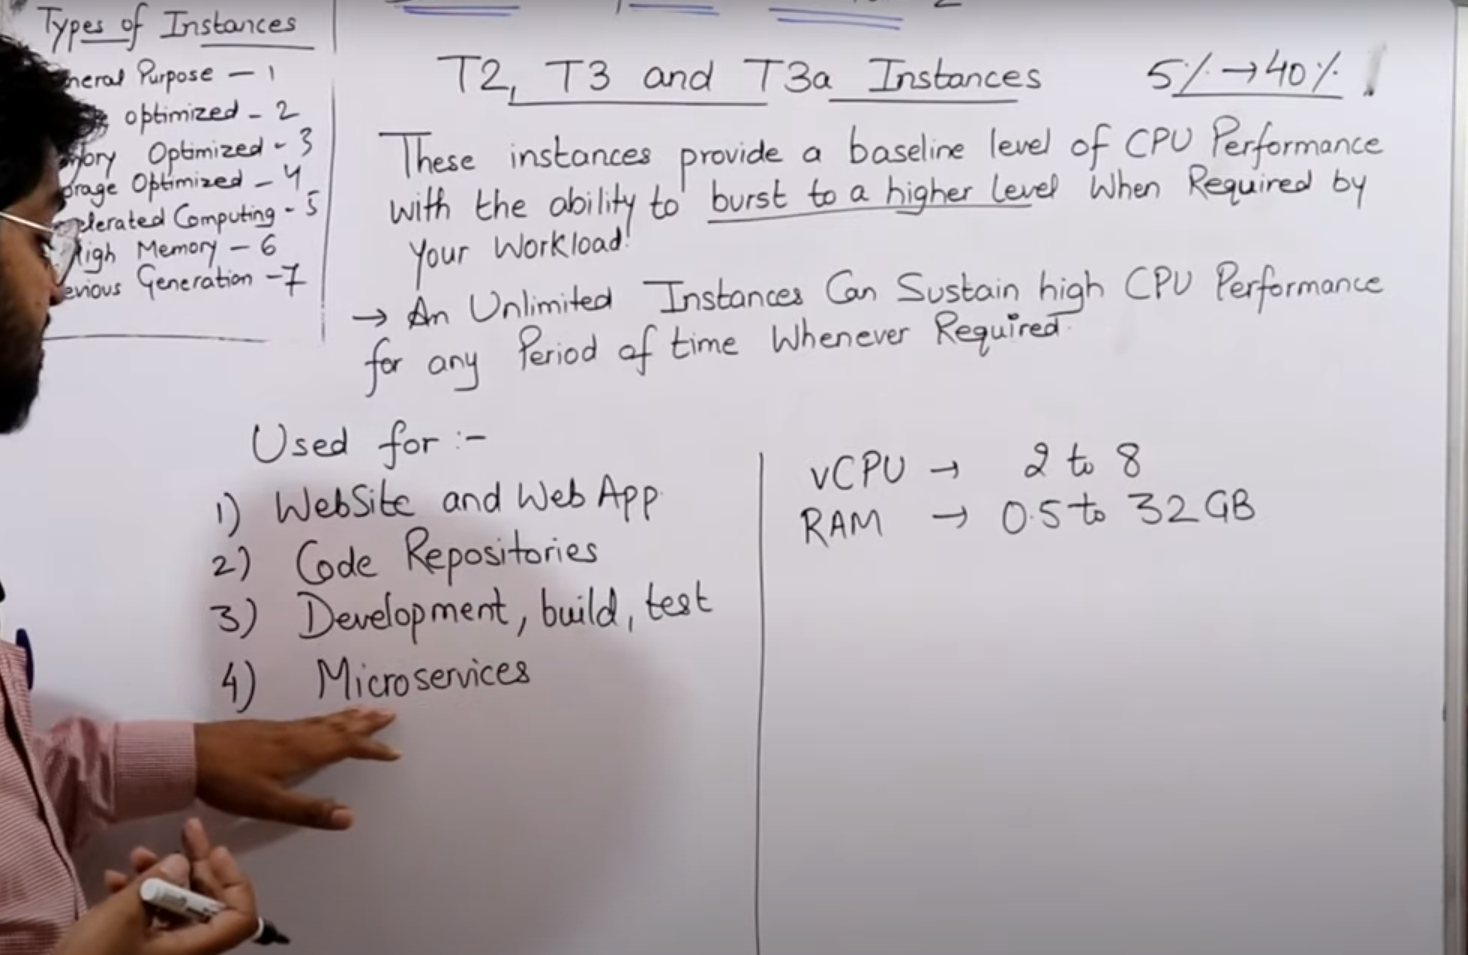 Types of Instances
Purpose - 1
optimized - 2
Optimized - 3
Optimized - 4
Computing - 5
High Memory - 6
Generation - 7
T2, T3 and T3a Instances
5% → 40%
These instances provide a baseline level of CPU Performance
with the ability to burst to a higher level When Required by
your Workload.
→ An Unlimited Instances Can Sustain high CPU Performance
for any Period of time Whenever Required.
Used for :-
1) WebSite and Web App
2) Code Repositories
3) Development, build, test
4) Microservices
vCPU → 2 to 8
RAM → 0.5 to 32 GB